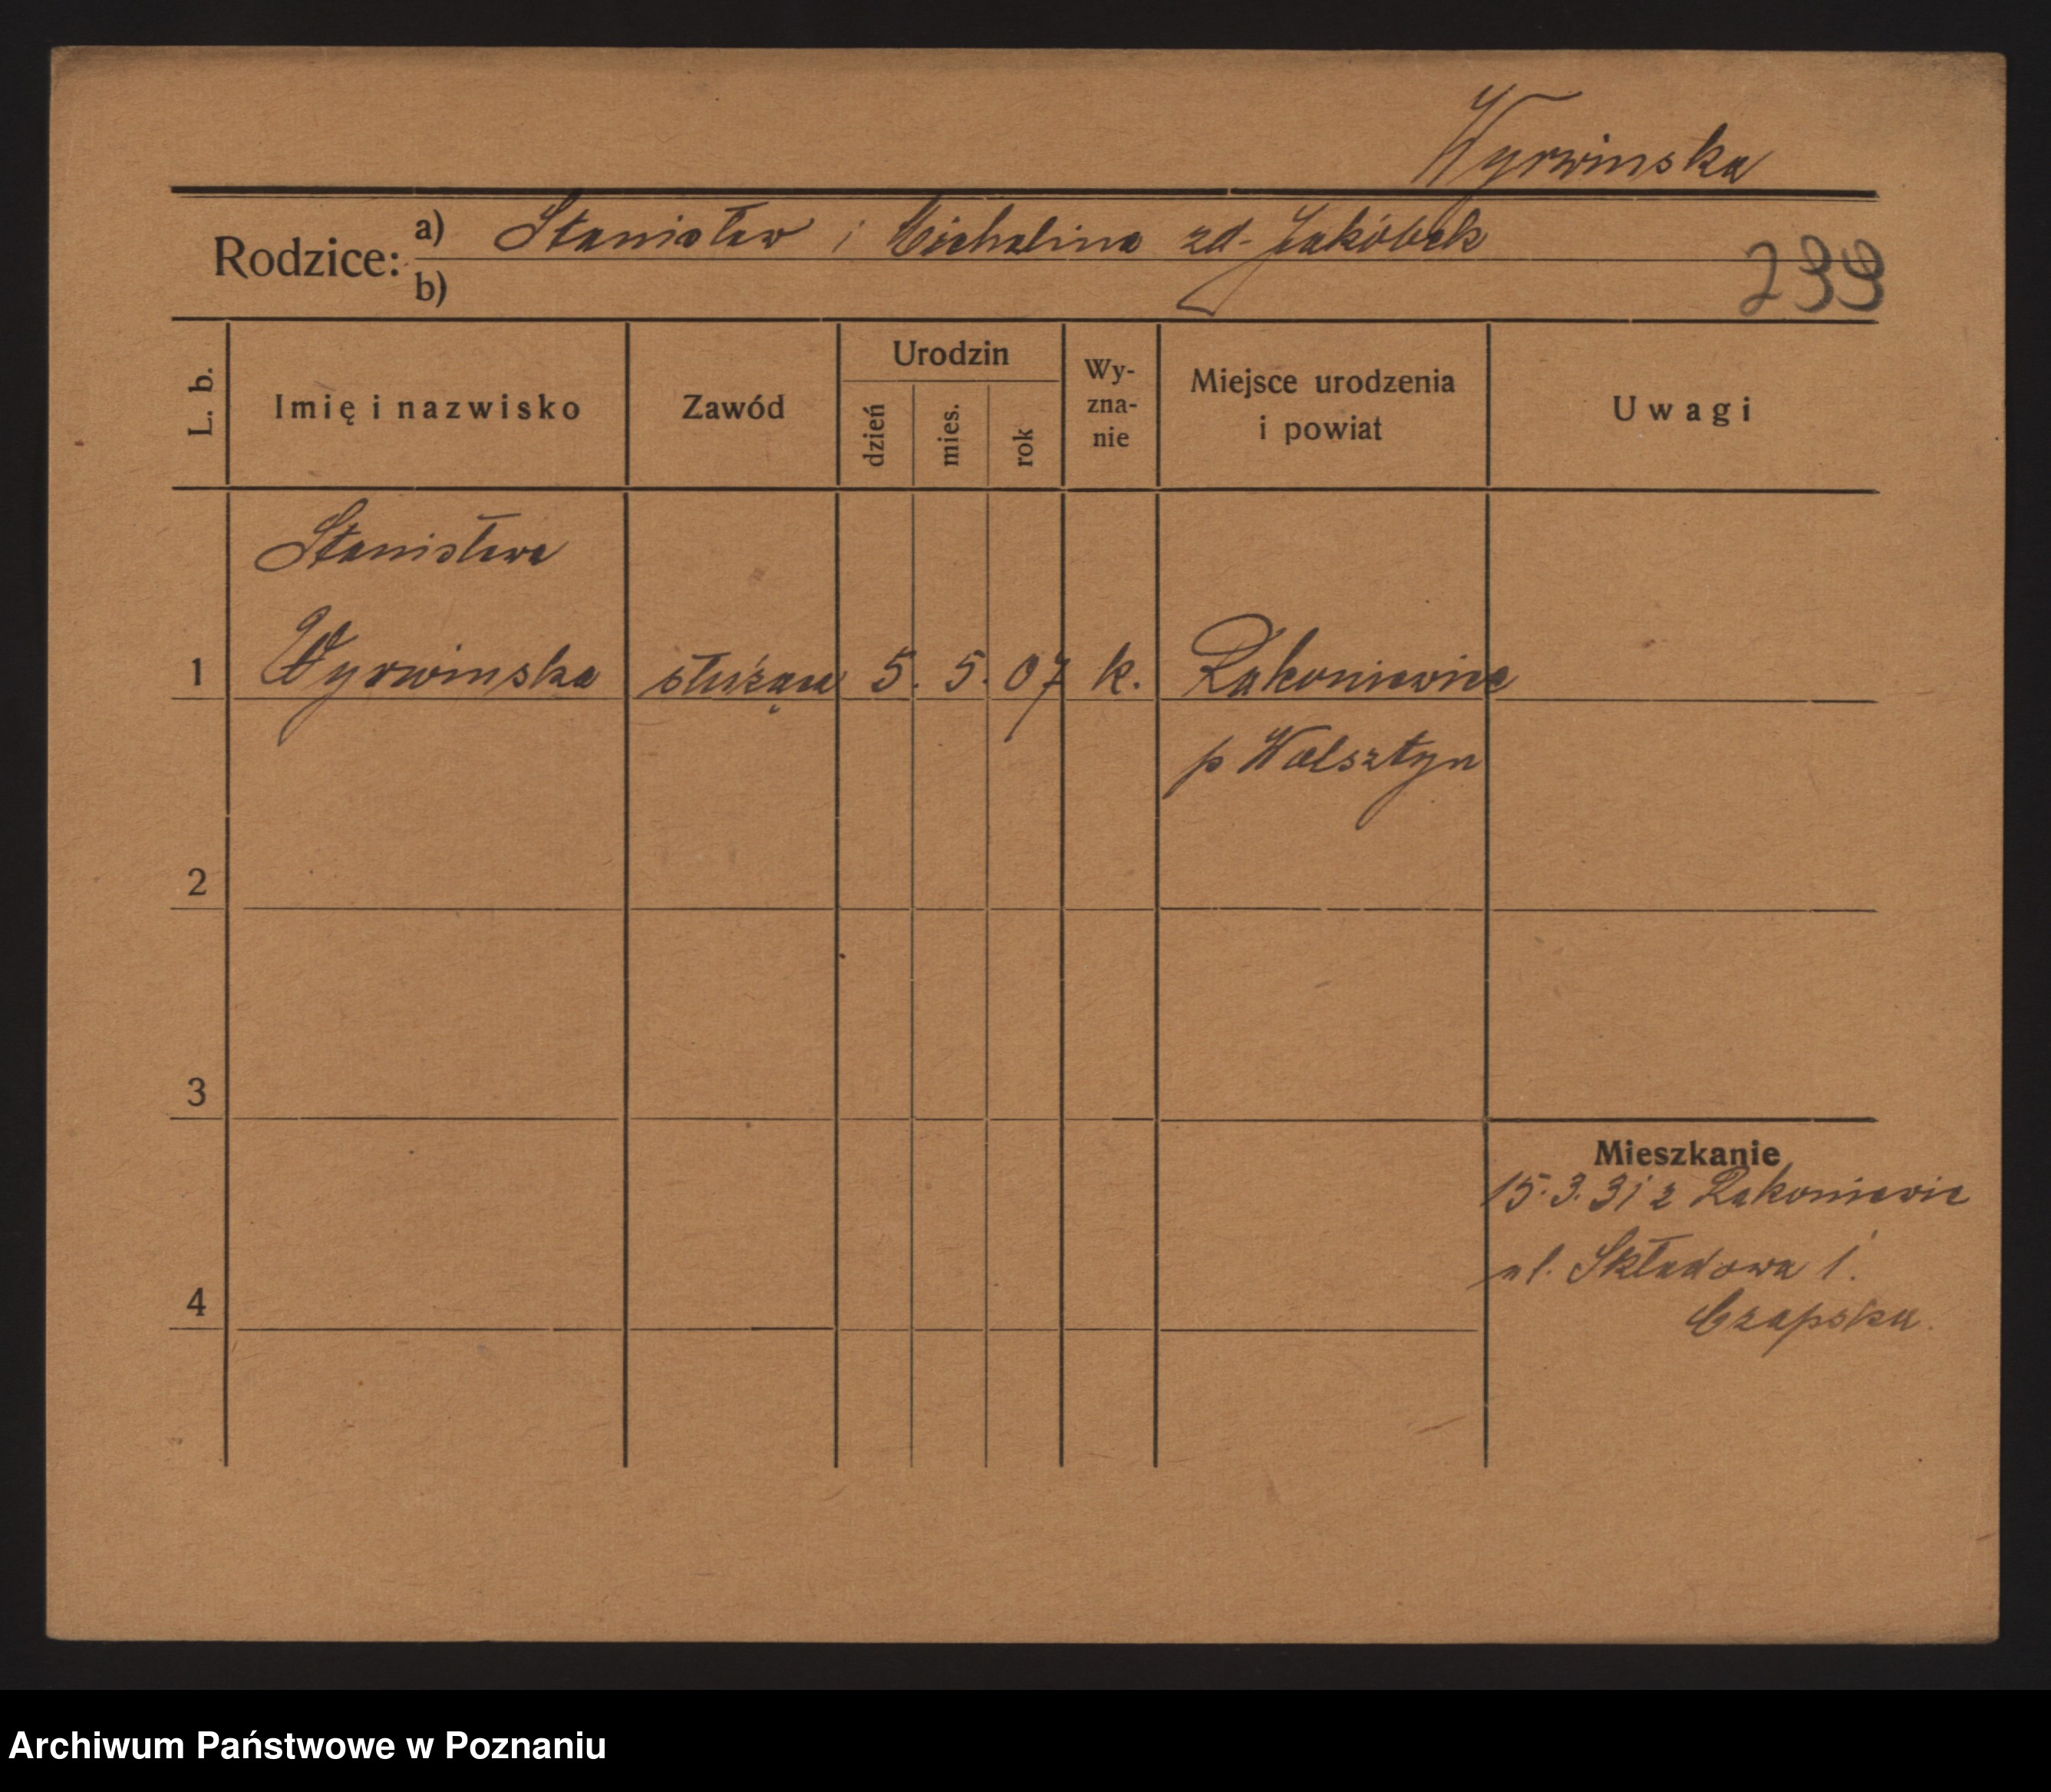 Wyrwinska
Rodzice:
a) Stanisław i Michalina zd. Jakóbek
b)
239
L. b.
Imię i nazwisko
Zawód
Urodzin
dzień
mies.
rok
Wy-
zna-
nie
Miejsce urodzenia
i powiat
Uwagi
Stanisława
1 Wyrwinska służąca 5. 5. 07 k. Rakoniewice
p Wolsztyn
2
3
Mieszkanie
15.3.31 z Rakoniewic
ul. Składowa 1.
4
Czapska.
Archiwum Państwowe w Poznaniu